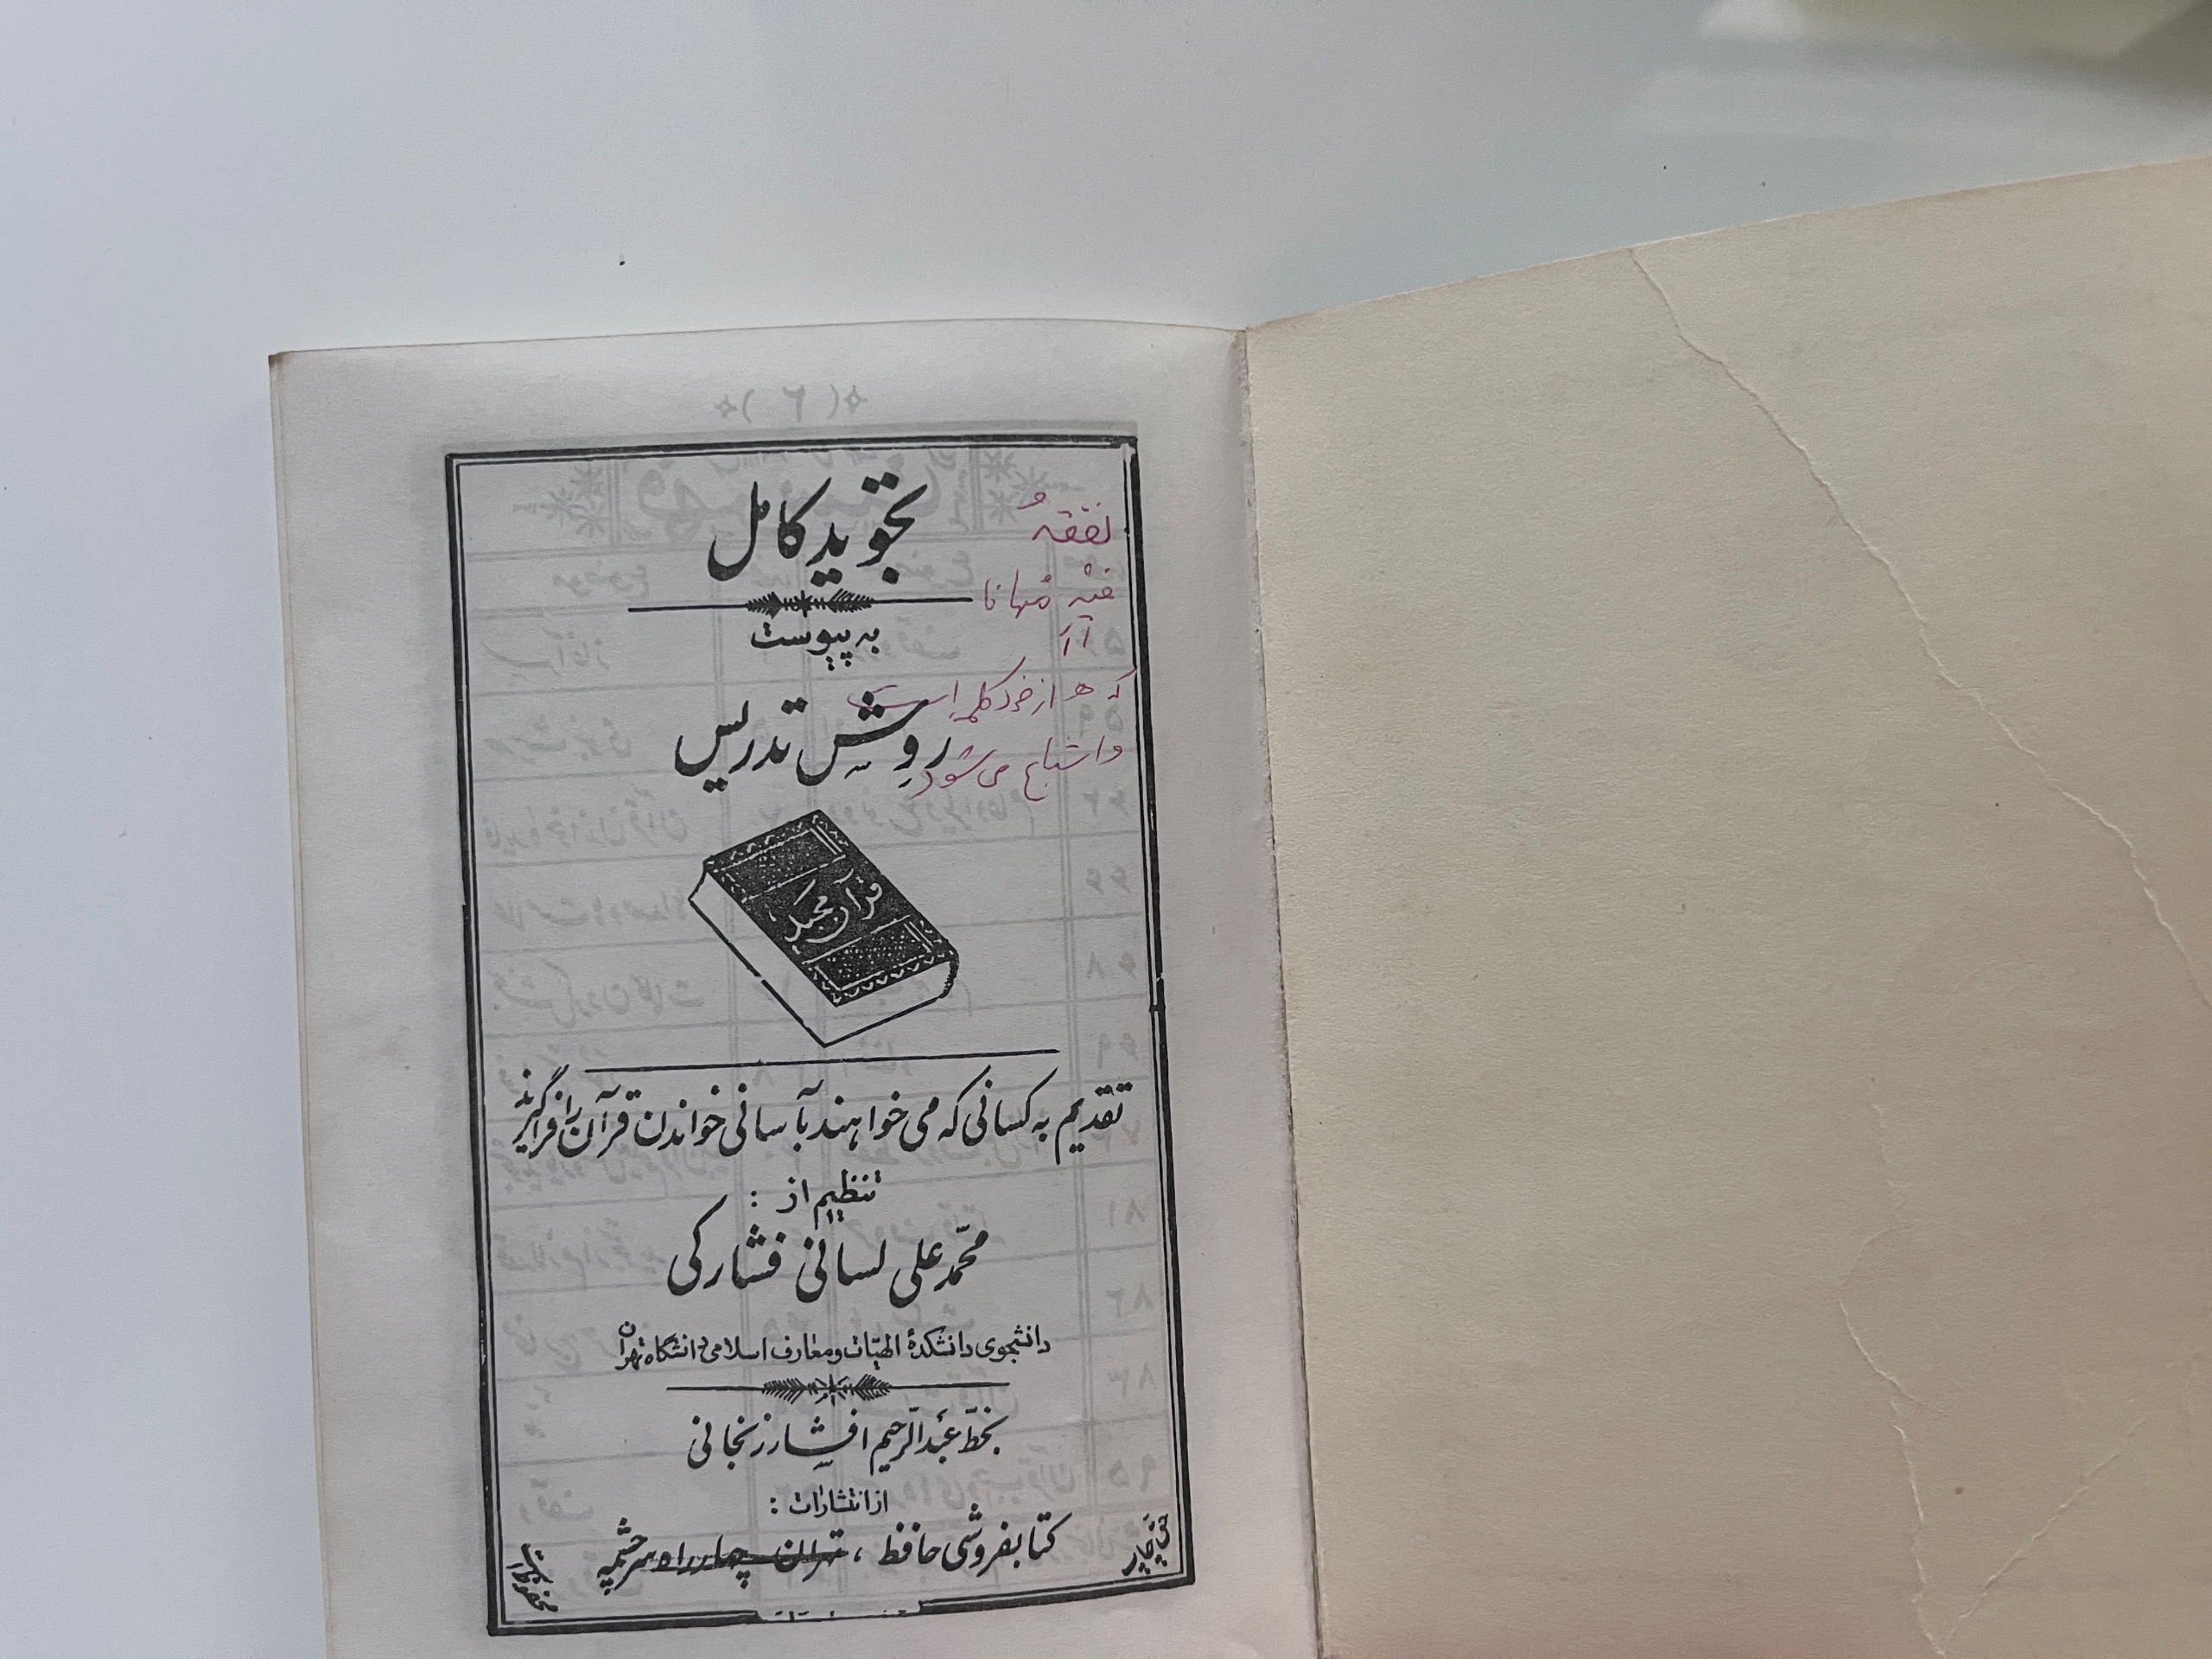 تجوید کامل
به پیوست
روشِ تدریس
قرآن مجید
تقدیم به کسانی که می خواهند بآسانی خواندن قرآن را فراگیرند
تنظیم از :
محمّد علی لسانی فشارکی
دانشجوی دانشکدهٔ الهیّات و معارف اسلامی دانشگاه تهران
بخطّ عبدالرّحیم افشار زنجانی
از انتشارات :
کتابفروشی حافظ ، تهران چهارراه سرچشمه
حق چاپ
محفوظ است
نفقهُ
فیه مُهانا
که ه از خود کلمه است
و اشباع می شود